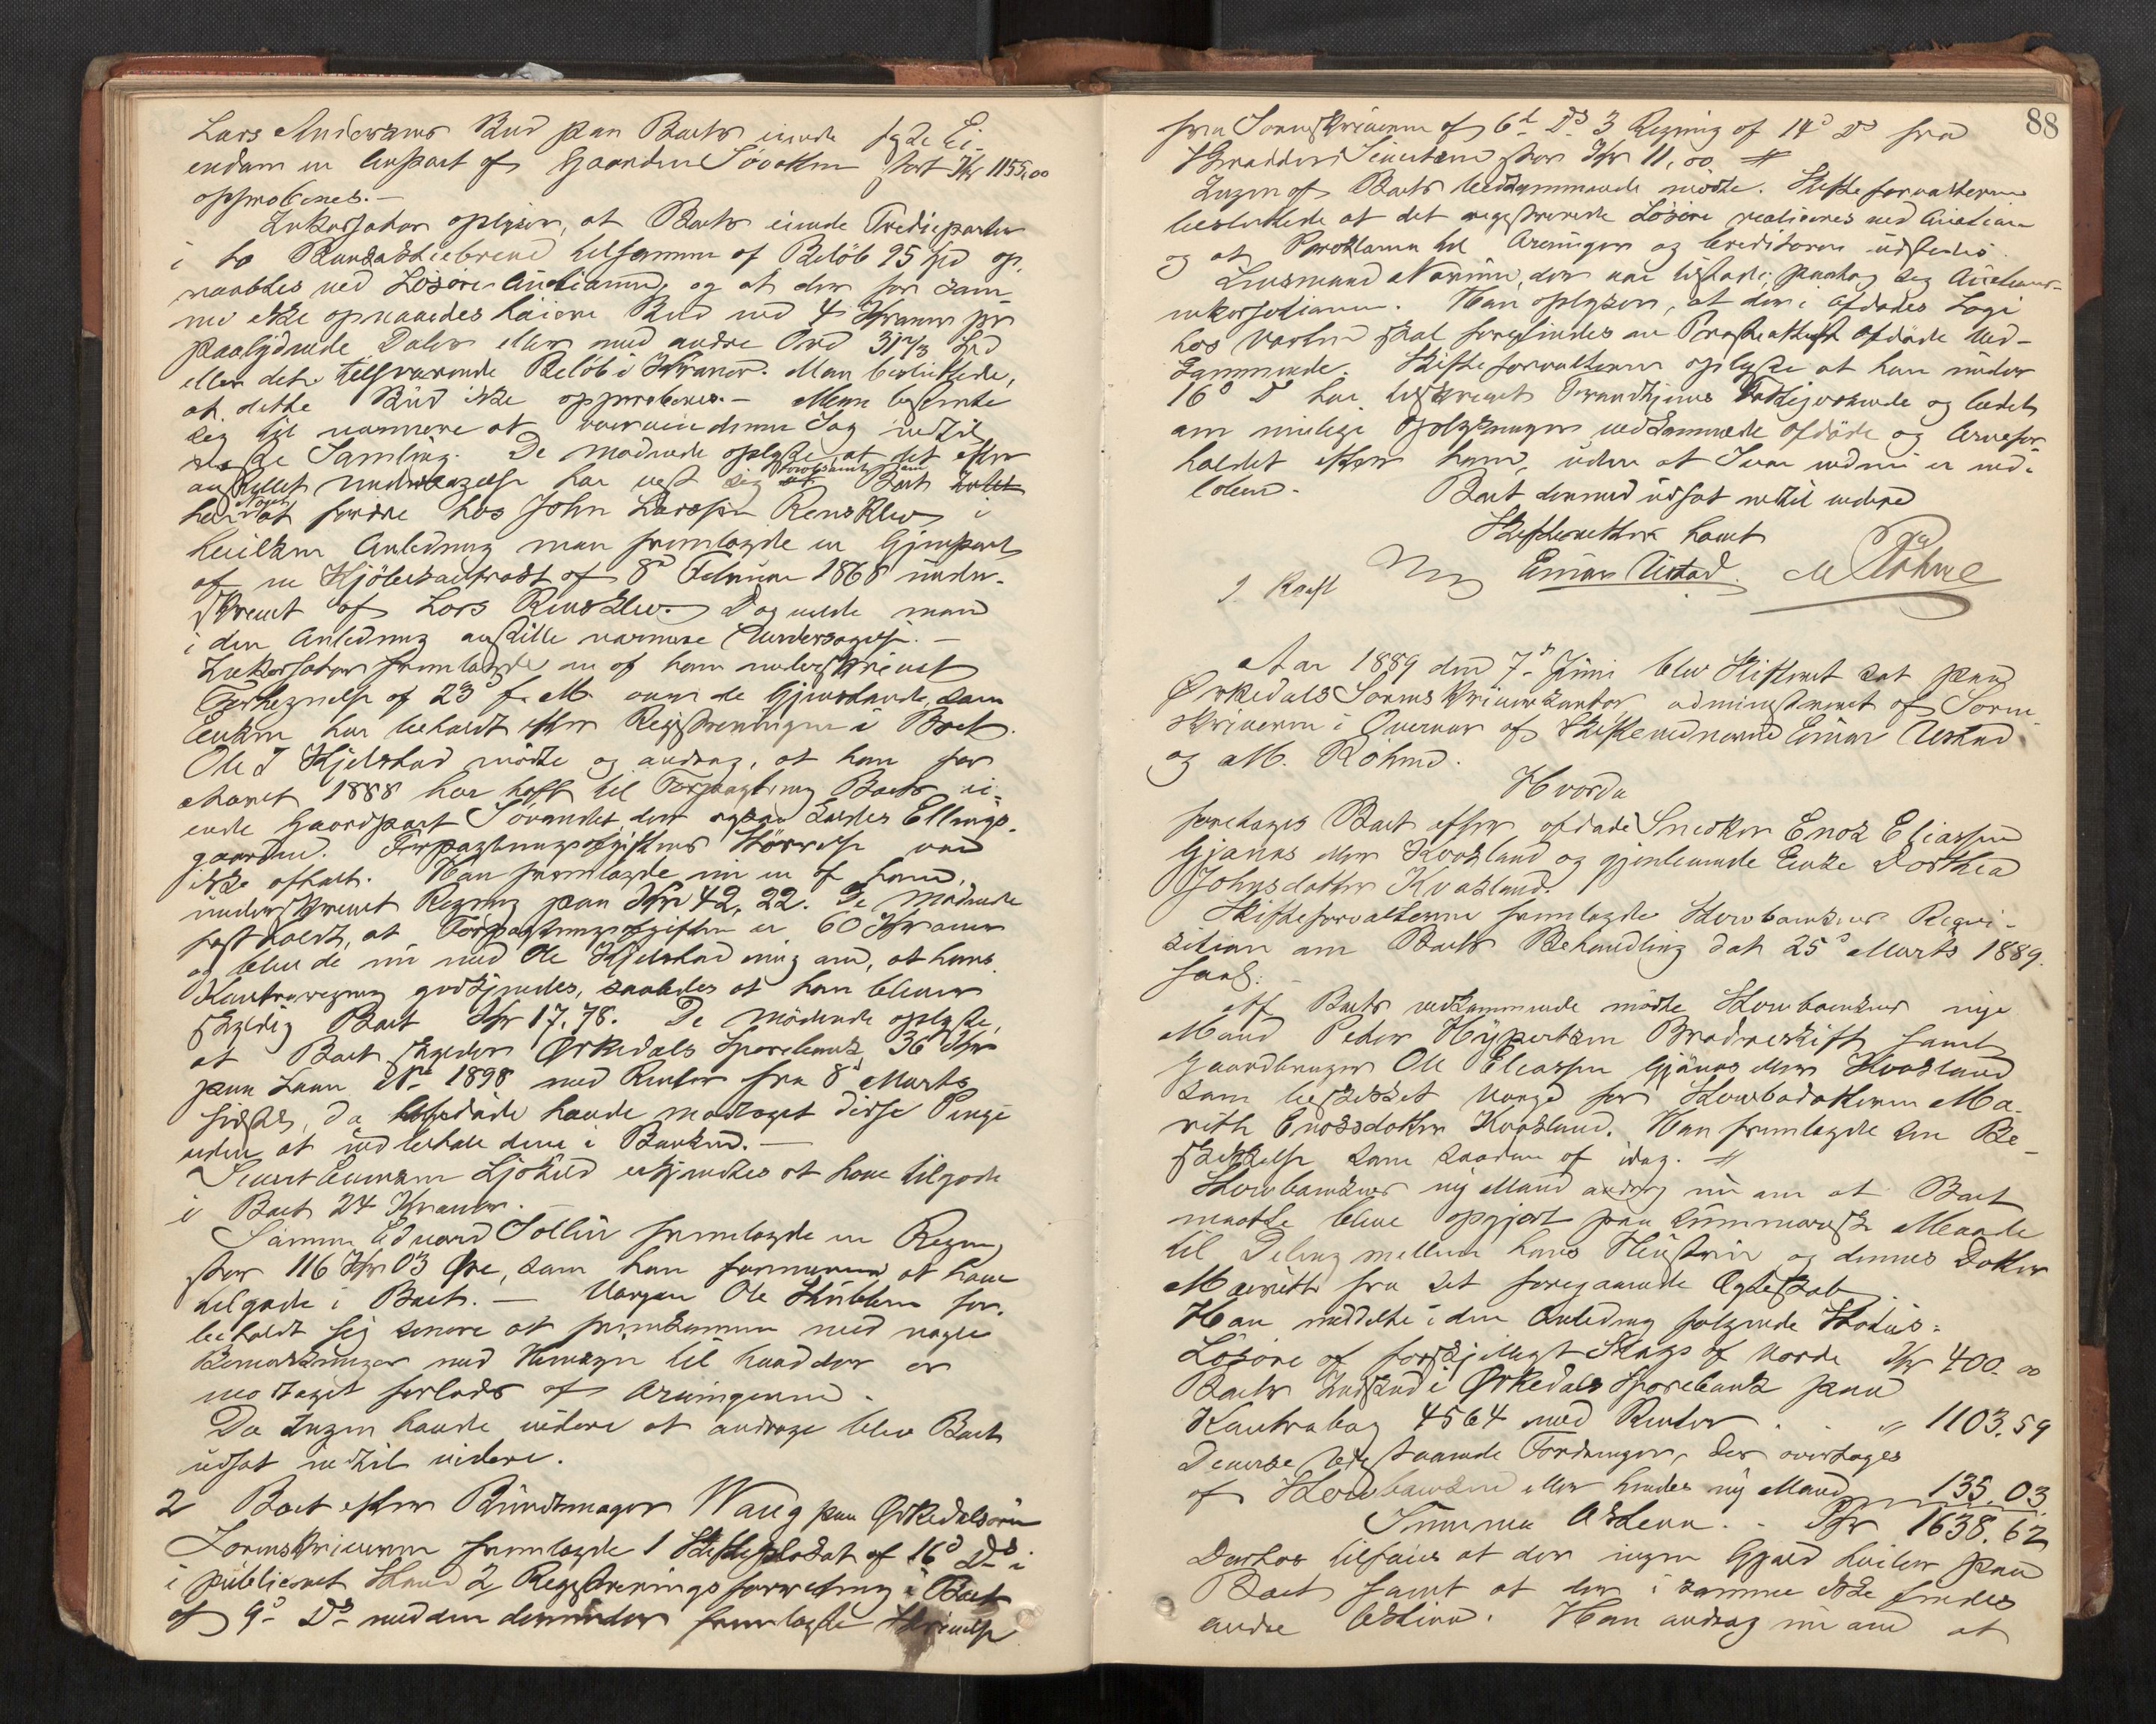 Lars Andersens Bud paa Boets eiende faste Ei-
endom en Anpart af Gaarden Sövolden stort Kr 1155,00
approberes.-
Inkassator oplyser, at Boets eiende Trediepart
i to Bankaktiebreve tilsammen af Beløb 95 Spd op-
raabtes ved Løsøre-Auktionen, og at der for sam-
me ikke opnaaedes høiere Bud end 4 Kroner pr
paalydende Daler eller med andre Ord 31 2/3 Spd
eller det tilsvarende Beløb i Kroner. Man besluttede,
at dette Bud ikke approberes.- Man bestemte
sig til nærmere at overveie denne Sag indtil
næste Samling. De mødende oplyste, at det efter
anstillet Undersøgelse har vist sig at Boet
har Noget at fordre hos John Larssen Rensklev i
hvilken Anledning man fremlagde en Gjenpart
af en Kjøbekontrakt af 8d Februar 1868 under-
skrevet af Lars Rensklev. Dog vilde man
i den Anledning anstille nærmere Undersøgelse.-
Inkassator fremlagde en af ham underskrevet
Fortegnelse af 23d f. M. over de Gjenstande, som
Enken har beholdt efter Registreringen i Boet.
Ole J Kjelstad mødte og androg, at han for
Aaret 1888 har havt til Forpagtning Boets ei-
ende Gaardpart Sövandet, der ogsaa kaldes Ellings-
gaarden. Forpagtningsafgiftens Størrelse var
ikke aftalt. Han fremlagde nu en af ham
underskrevet Regning paa Kr 42,22. De Mødende
fastholdt, at Forpagtningsafgiften er 60 Kroner
og blev de nu med Ole Kjelstad enig om, at hans
Kontraregning godkjendes, saaledes at han bliver
skyldig Boet Kr 17,78. De Mødende oplyste,
at Boet skylder Ørkedals Sparebank 36 Kr
paa Laan No 1898 med Renter fra 8d Marts
sidste, da Afdøde havde modtaget disse Penge
uden at indbetale dem i Banken.-
Sivert Evensen Ljøkel erkjendtes at have tilgode
i Boet 24 Kroner.-
Samme Edvard Sollie fremlagde en Regning
stor 116 Kr 03 Øre, som han formener at have
tilgode i Boet.- Værgen Ole for-
beholdt sig senere at fremkomme med nogle
Bemærkninger med Hensyn til hvad der er
modtaget forlods af Arvingerne.
Da Ingen havde videre at andrage blev Boet
udsat indtil videre.
2 Boet efter Bundtmager Wang paa Ørkedalsøren
Sorenskriveren fremlagde 1 Skifteplakat af 16d Ds i
i publiceret Stand 2 Registreringsforretning i Boet
af 9d Ds med den derunder fremlagte Skrivelse
88
fra Sorenskriveren af 6d Ds 3 Regning af 14d Ds fra
Sivertsen stor Kr 11,00 #
Ingen af Boets vedkommende mødte. Skifteforvalteren
besluttede at det registrerede Løsøre realiseres ved Auktion
og at Proklama til Arvinger og Creditorer udstedes.
Lensmand Narum, der var tilstede, paatog sig Auktions-
inkassationen. Han oplyser, at der i Afdødes Logi
hos Verten skal forefindes en Præsteattest Afdøde ved-
kommende. Skifteforvalteren oplyste at han under
16d D har tilskrevet Trondhjems Skifterskriver og bedet
om mulige Oplysninger vedkommende Afdøde og Arvefor-
holdet efter ham, uden at Svar endnu er ind-
løbet. Boet dermed udsat indtil videre
Skifteretten hævet
J Roest Einar Ustad. M Røhme
Aar 1889 den 7d Juni blev Skifteret sat paa
Ørkedals Sorenskriverkontor administreret af Soren-
skriveren i Overvær af Skiftevidnerne Einar Ustad
og M. Röhme.
Hvorda
foretages Boet efter afdøde Snedker Enok Eliassen
Gjønnes eller Kvakland og gjenlevende Enke Dorthea
Johnsdatter Kvakland.
Skifteforvalteren fremlagde Stervboenkens Reqvi-
sition om Boets Behandling dat 25d Marts 1889.
saal:
Af Boets vedkommende mødte Stervboenkens nye
Mand Peder Bradreskift samt
Gaardbruger Ole Eliassen Gjønnes eller Kvakland
som beskikket Værge for Stervbodatteren Ma-
rith Enoksdatter Kvakland. Han fremlagde sin Be-
skikkelse som saadan af idag. #
Stervboenkens ny Mand androg nu om at Boet
maatte blive opgjort paa summarisk Maade
til Deling mellem hans Hustru og dennes Datter
Marith fra det foregaaende Ægteskab.
Han meddelte i den Anledning følgende Status:
Løsøre af forskjelligt Slags af Værdi Kr 400.00
Boets Indskud i Ørkedals Sparebank paa
Kontrabog 4564 med Renter . . " 1103.59
Diverse udestaaende Fordringer, der overtages
af Stervboenken eller hendes ny Mand 135.03
Summa Aktiva . . Kr 1638.62
Derhos tilføies at der ingen Gjæld hviler paa
Boet samt at der i samme ikke findes
andre Aktiva. Han androg nu om at